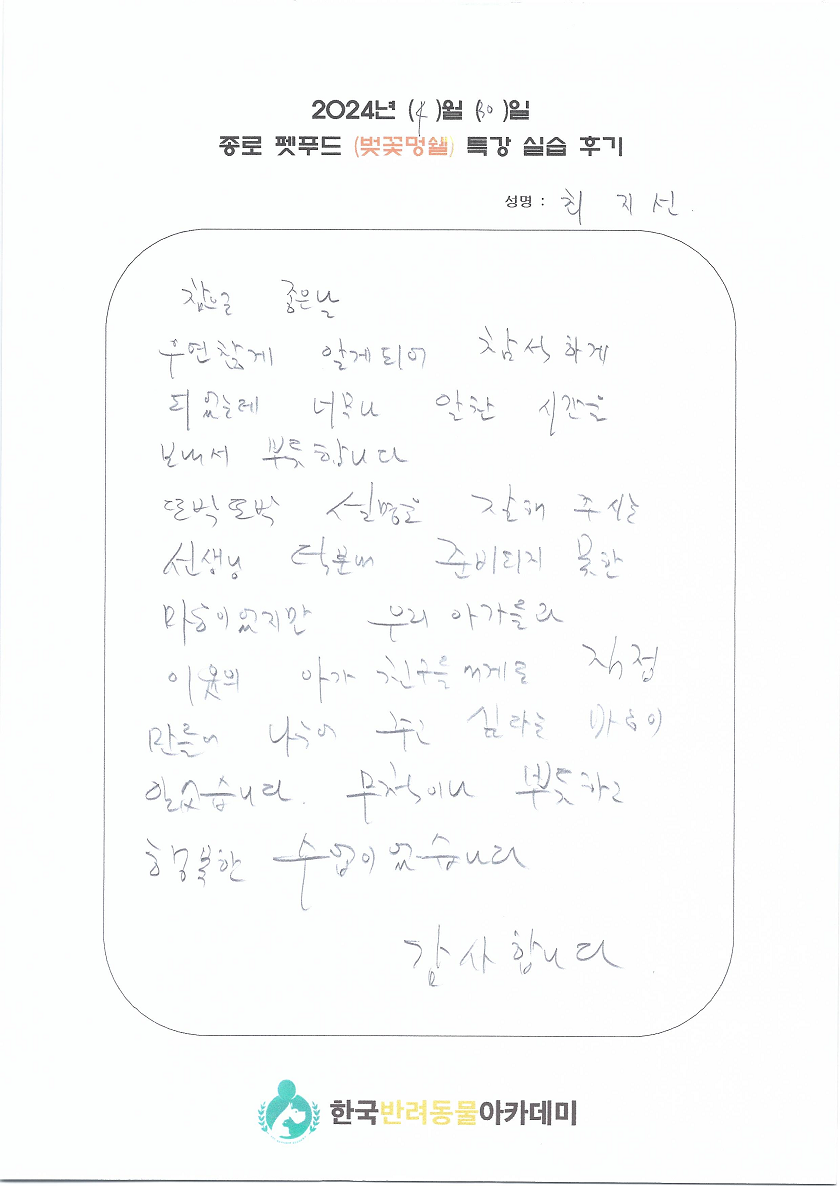 2024년 (4)월 (30)일
종로 펫푸드 (벚꽃멍쉘) 특강 실습 후기
성명 : 최 지 선.
참으로 좋은날
우연찮게 알게되어 참석하게
되었는데 너무나 알찬 시간을
보내서 뿌듯합니다
또박또박 설명을 잘해 주시는
선생님 덕분에 준비되지 못한
마음이었지만 우리 아가들과
이웃의 아가 친구들에게도 직접
만들어 나누어 주고 싶다는 마음이
일었습니다. 무척이나 뿌듯하고
행복한 수업이었습니다
감사합니다.
한국반려동물아카데미